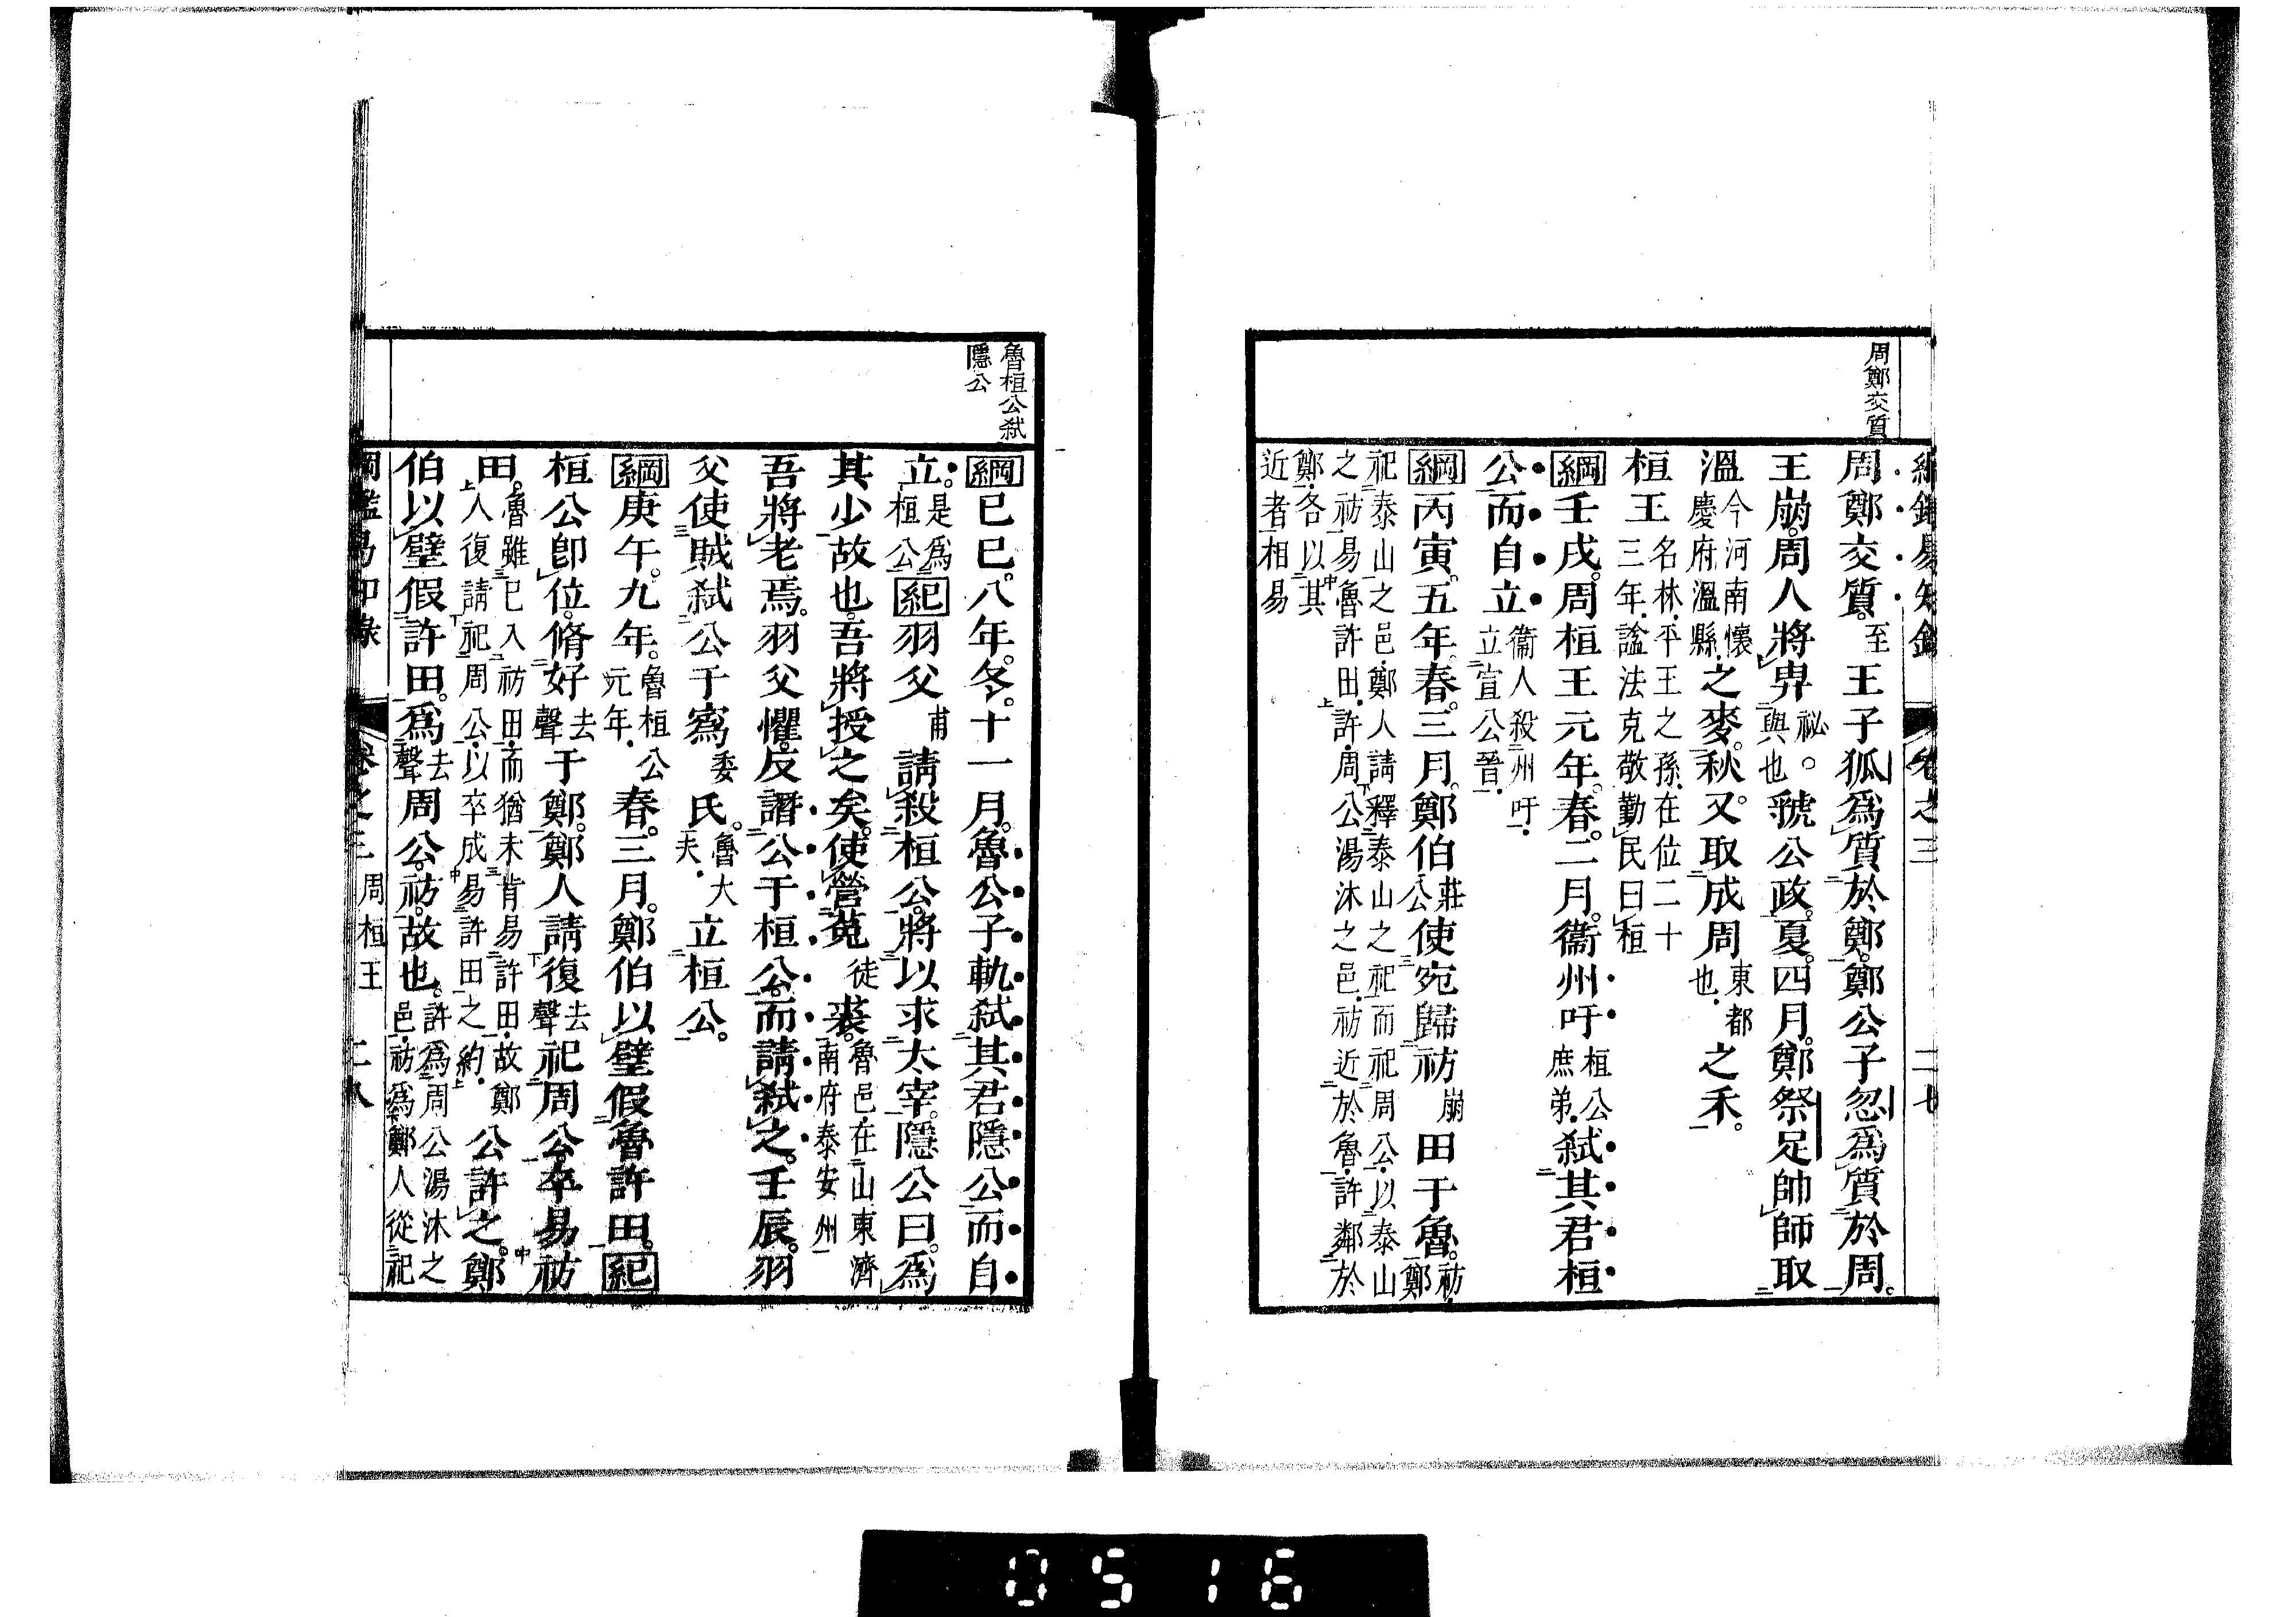 周鄭交質
綱鑑易知錄 卷之三 二十七
周鄭交質。至王子狐爲質於鄭。鄭公子忽爲質於周。
王崩。周人將畀祕。與也。虢公政。夏。四月。鄭祭足帥師取
溫今河南懷慶府溫縣。之麥。秋。又取成周東都也。之禾。
桓王名林。平王之孫。在位二十三年。諡法克敬勤民曰桓
綱壬戌。周桓王元年。春。二月。衞州吁桓公庶弟。弑其君桓
公而自立衞人殺州吁。立宣公晉。
綱丙寅。五年。春。三月。鄭伯莊公使宛歸祊崩田于魯。祊。鄭
祀泰山之邑。鄭人請釋泰山之祀而祀周公。以泰山
之祊易魯許田。許。周公湯沐之邑。祊近於魯。許鄰於
鄭。各以其
近者相易
魯桓公弑
隱公
綱己巳。八年。冬。十一月。魯公子軌弑其君隱公而自
立。是爲桓公紀羽父甫請殺桓公。將以求太宰。隱公曰。爲
其少故也。吾將授之矣。使營菟徒裘。魯邑。在山東濟南府泰安州
吾將老焉。羽父懼。反譖公于桓公。而請弑之。壬辰。羽
父使賊弑公于寪委氏。魯大夫。立桓公。
綱庚午。九年。魯桓公元年。春。三月。鄭伯以璧假魯許田。紀
桓公卽位。脩好去聲于鄭。鄭人請復去聲祀周公。卒易祊
田。魯雖已入祊田。而猶未肯易許田。故鄭人復請祀周公。以卒成易許田之約。公許之。鄭
伯以璧假許田。爲去聲周公祊故也。許爲周公湯沐之邑。祊爲鄭人從祀
綱鑑易知錄 卷之三 周桓王 二十八
0516